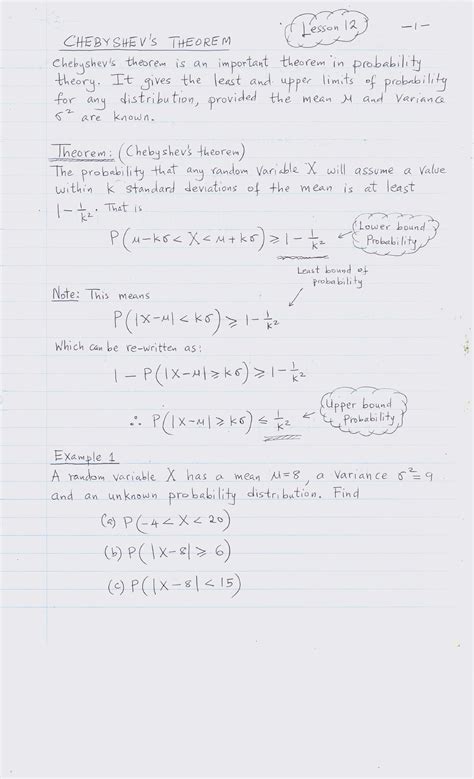 Lesson 12
-1-
CHEBYSHEV'S THEOREM
Chebyshev's theorem is an important theorem in probability
theory. It gives the least and upper limits of probability
for any distribution, provided the mean μ and variance
σ² are known.
Theorem: (Chebyshev's theorem)
The probability that any random variable X will assume a value
within k standard deviations of the mean is at least
1 - 1/k². That is
P(μ-kσ < X < μ+kσ) ⩾ 1 - 1/k²
Lower bound
Probability
Least bound of
probability
Note: This means
P(|X-μ| < kσ) ⩾ 1 - 1/k²
Which can be re-written as:
1 - P(|X-μ| ⩾ kσ) ⩾ 1 - 1/k²
∴ P(|X-μ| ⩾ kσ) ≤ 1/k²
Upper bound
Probability
Example 1
A random variable X has a mean μ=8, a variance σ²=9
and an unknown probability distribution. Find
(a) P(-4 < X < 20)
(b) P(|X-8| ⩾ 6)
(c) P(|X-8| < 15)